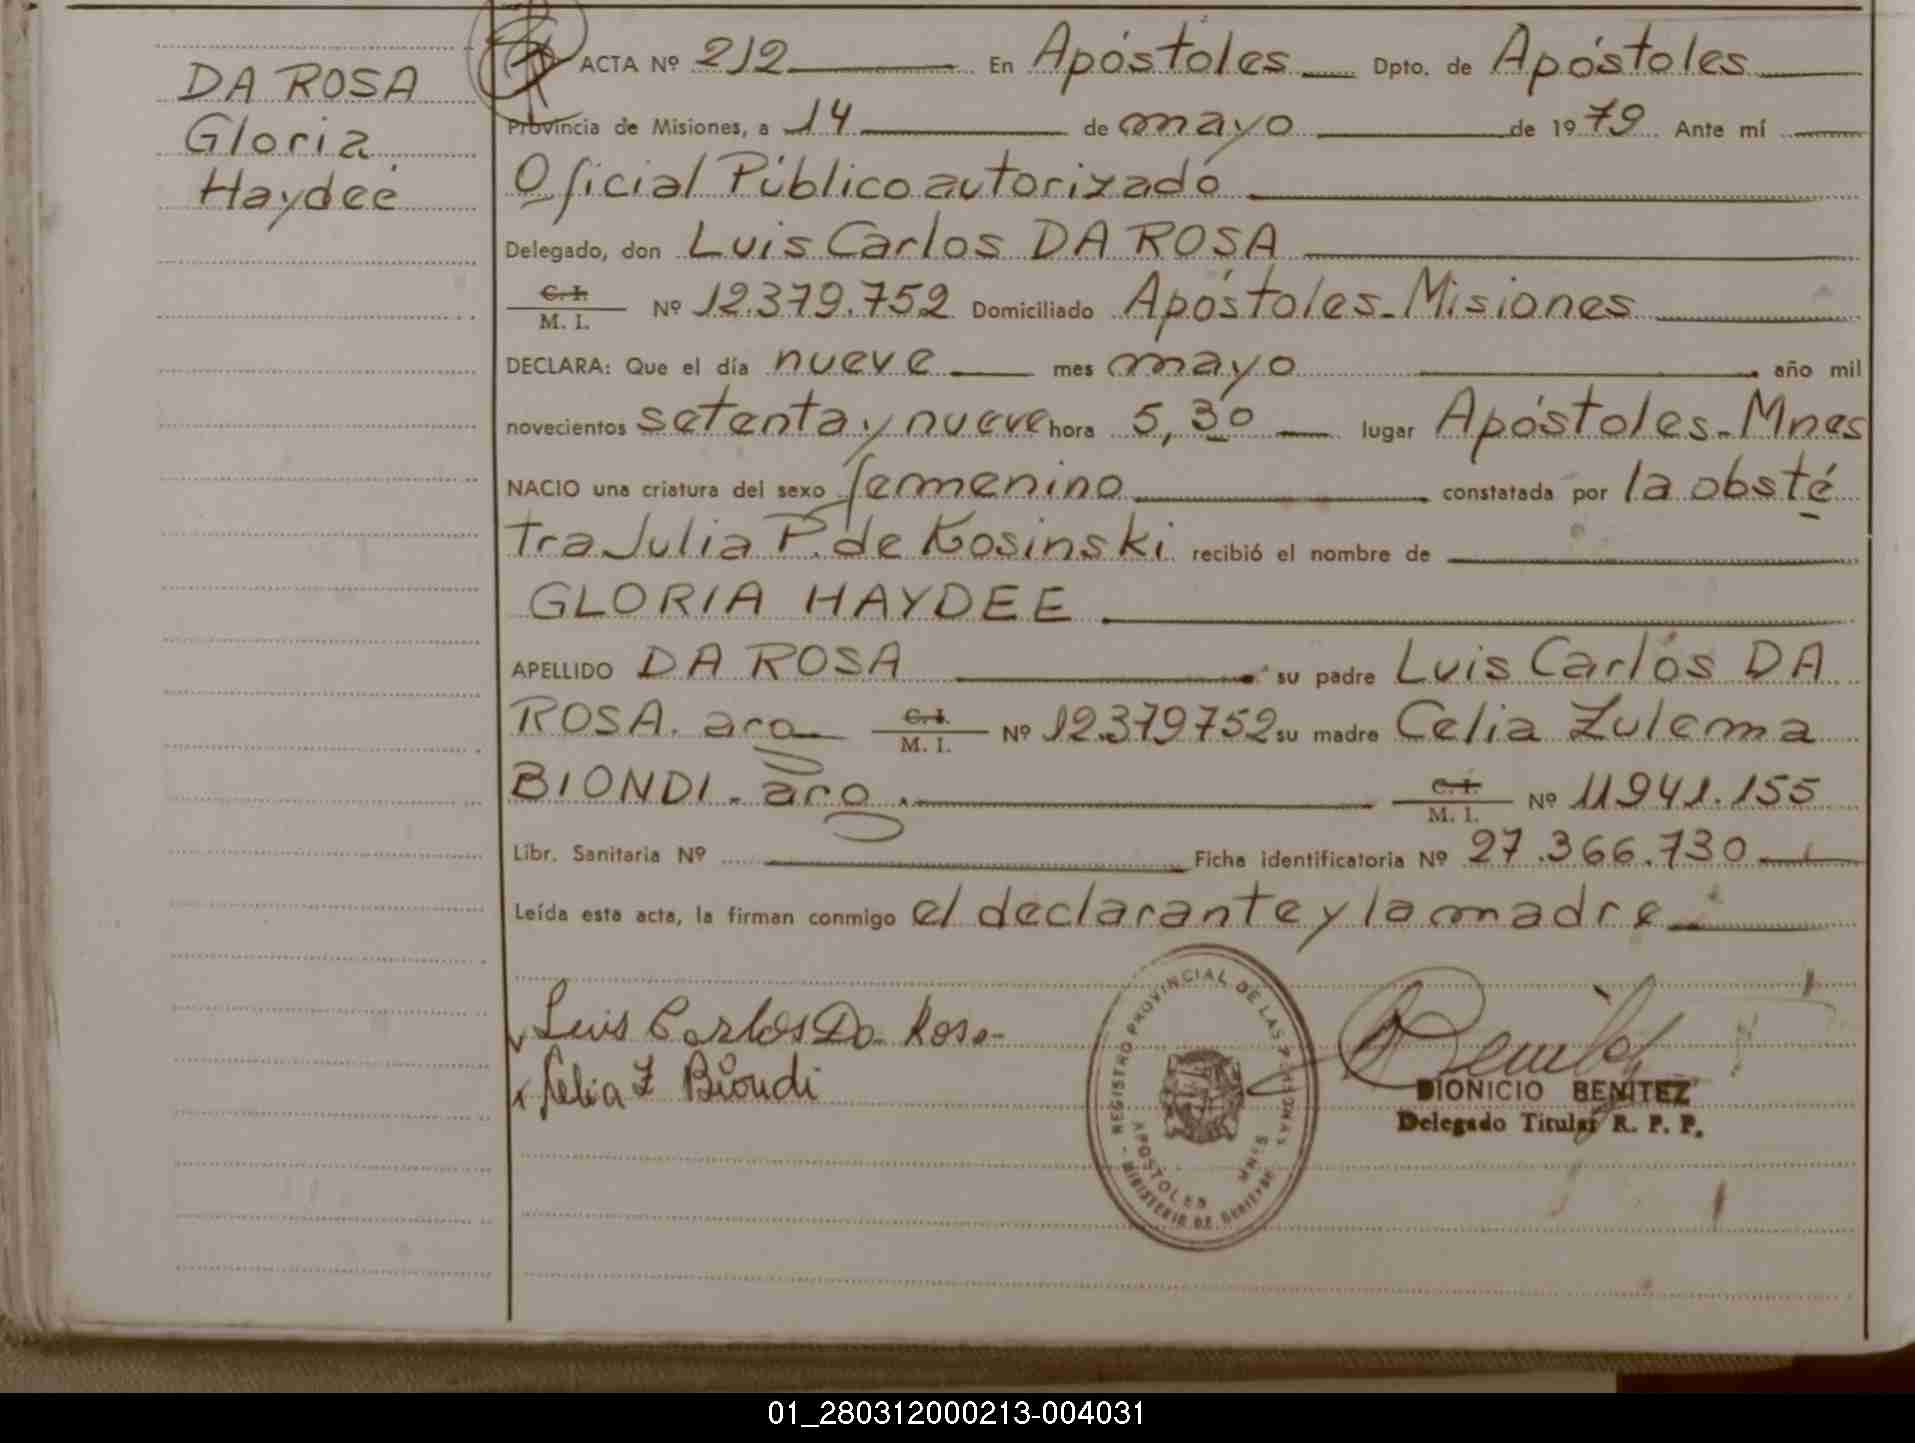 DA ROSA
Gloria
Haydeé
ACTA Nº 212 En Apóstoles Dpto. de Apóstoles
Provincia de Misiones, a 14 de mayo de 1979 Ante mí
Oficial Público autorizado
Delegado, don Luis Carlos DA ROSA
C. I.
M. I. Nº 12.379.752 Domiciliado Apóstoles-Misiones
DECLARA: Que el día nueve mes mayo año mil
novecientos setenta y nueve hora 5,30 lugar Apóstoles-Mnes
NACIO una criatura del sexo femenino constatada por la obsté
tra Julia P. de Kosinski recibió el nombre de
GLORIA HAYDEE
APELLIDO DA ROSA su padre Luis Carlos DA
ROSA. arg C. I.
M. I. Nº 12.379752 su madre Celia Zulema
BIONDI - arg. C. I.
M. I. Nº 11941.155
Libr. Sanitaria Nº Ficha identificatoria Nº 27.366.730
Leída esta acta, la firman conmigo el declarante y la madre
Luis Carlos Da Rosa
Celia Z Biondi
REGISTRO PROVINCIAL DE LAS PERSONAS
APOSTOLES MNES
MINISTERIO DE GOBIERNO
Benitez
DIONICIO BENITEZ
Delegado Titular R. P. P.
01_280312000213-004031